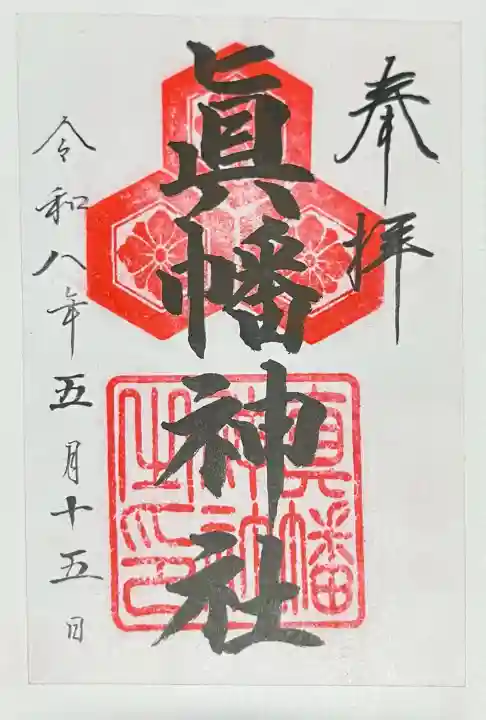 奉拝
眞幡神社
真幡
神社
之印
令和八年五月十五日